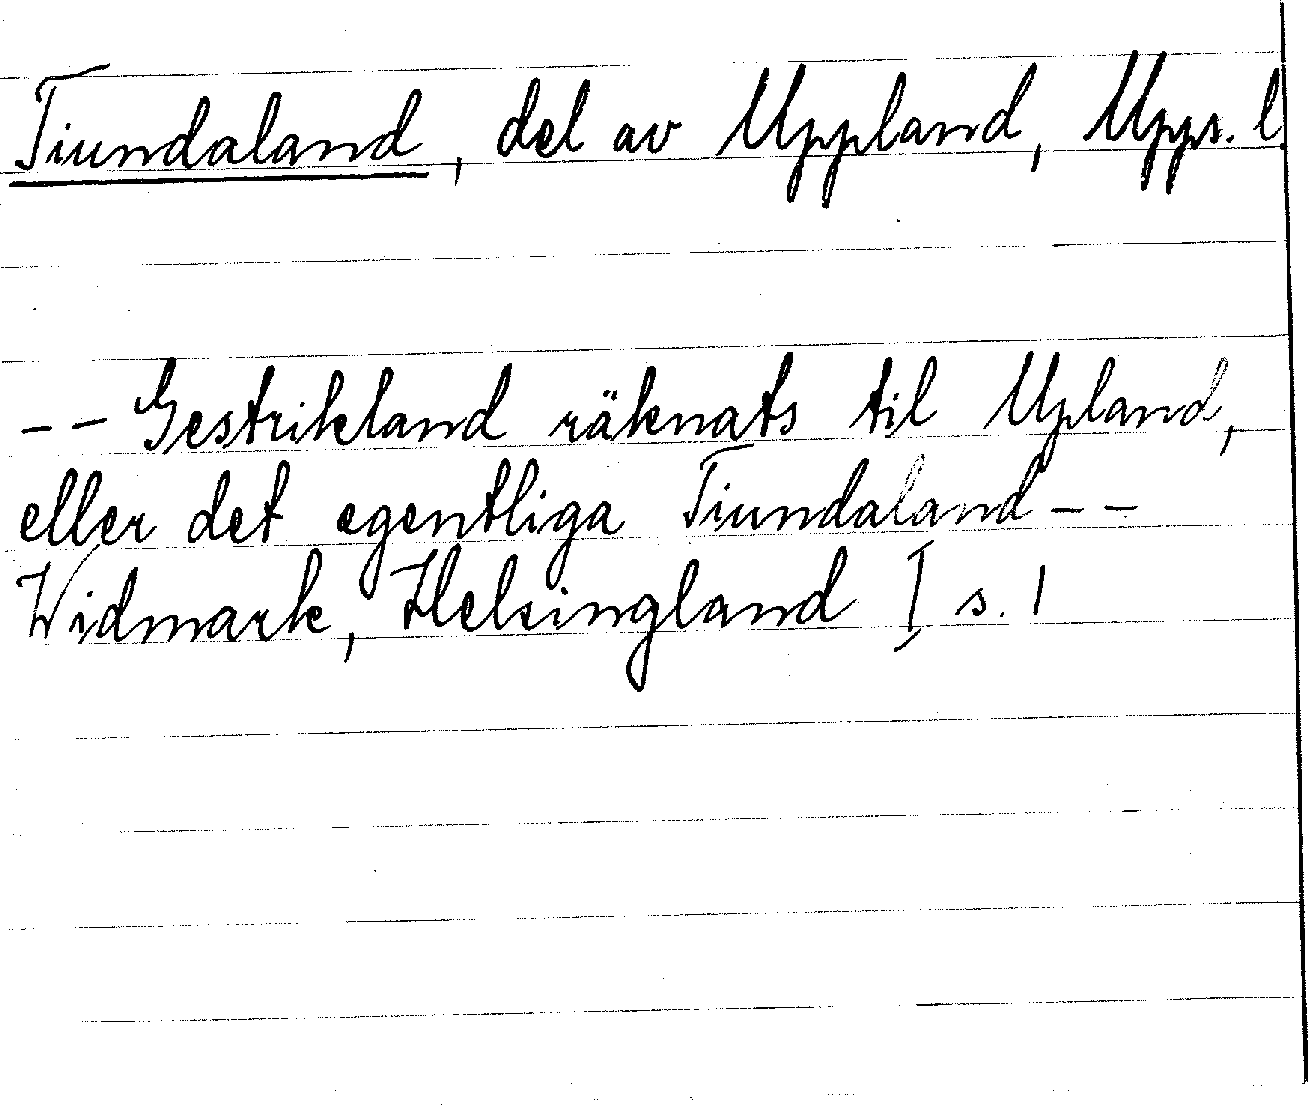 Tiundaland, del av Uppland, Upps. l.
-- Gestrikland räknats til Upland,
eller det egentliga Tiundaland --
Widmark, Helsingland I s. 1